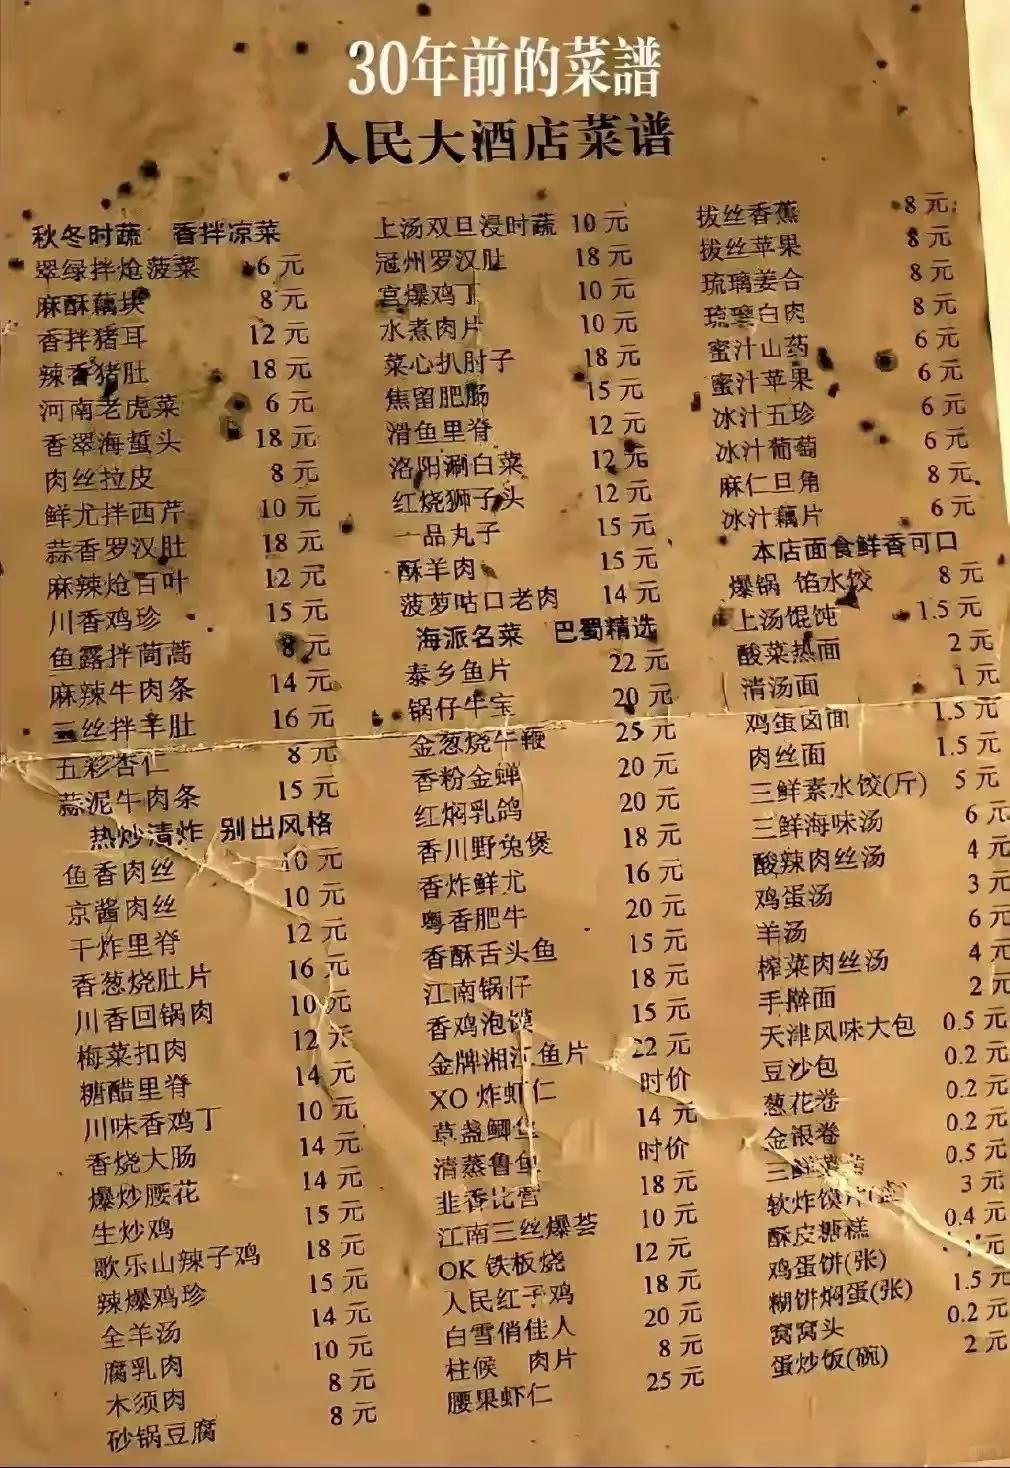 30年前的菜譜
人民大酒店菜谱
秋冬时蔬 香拌凉菜
翠绿拌炝菠菜 6元
麻酥藕块 8元
香拌猪耳 12元
辣香猪肚 18元
河南老虎菜 6元
香翠海蜇头 18元
肉丝拉皮 8元
鲜尤拌西芹 10元
蒜香罗汉肚 18元
麻辣炝百叶 12元
川香鸡珍 15元
鱼露拌茼蒿 8元
麻辣牛肉条 14元
三丝拌羊肚 16元
五彩杏仁 8元
蒜泥牛肉条 15元
热炒清炸 别出风格
鱼香肉丝 10元
京酱肉丝 10元
干炸里脊 12元
香葱烧肚片 16元
川香回锅肉 10元
梅菜扣肉 12元
糖醋里脊 14元
川味香鸡丁 10元
香烧大肠 14元
爆炒腰花 14元
生炒鸡 15元
歌乐山辣子鸡 18元
辣爆鸡珍 15元
全羊汤 14元
腐乳肉 10元
木须肉 8元
砂锅豆腐 8元
上汤双旦浸时蔬 10元
冠州罗汉肚 18元
宫爆鸡丁 10元
水煮肉片 10元
菜心扒肘子 18元
焦留肥肠 15元
滑鱼里脊 12元
洛阳涮白菜 12元
红烧狮子头 12元
一品丸子 15元
酥羊肉 15元
菠萝咕口老肉 14元
海派名菜 巴蜀精选
泰乡鱼片 22元
锅仔牛宝 20元
金葱烧牛鞭 25元
香粉金蝉 20元
红焖乳鸽 20元
香川野兔煲 18元
香炸鲜尤 16元
粤香肥牛 20元
香酥舌头鱼 15元
江南锅仔 18元
香鸡泡馍 15元
金牌湘江鱼片 22元
XO炸虾仁 时价
草盏鲫鱼 14元
清蒸鲁鱼 时价
韭香比管 18元
江南三丝爆荟 10元
OK铁板烧 12元
人民红子鸡 18元
白雪俏佳人 20元
柱候 肉片 8元
腰果虾仁 25元
拔丝香蕉 8元
拔丝苹果 8元
琉璃姜合 8元
琉璃白肉 8元
蜜汁山药 6元
蜜汁苹果 6元
冰汁五珍 6元
冰汁葡萄 6元
麻仁旦角 8元
冰汁藕片 6元
本店面食鲜香可口
爆锅 馅水饺 8元
上汤馄饨 1.5元
酸菜热面 2元
清汤面 1元
鸡蛋卤面 1.5元
肉丝面 1.5元
三鲜素水饺(斤) 5元
三鲜海味汤 6元
酸辣肉丝汤 4元
鸡蛋汤 3元
羊汤 6元
榨菜肉丝汤 4元
手擀面 2元
天津风味大包 0.5元
豆沙包 0.2元
葱花卷 0.2元
金银卷 0.2元
三鲜 0.5元
软炸馍片 3元
酥皮糖糕 0.4元
鸡蛋饼(张) 元
糊饼焖蛋(张) 1.5元
窝窝头 0.2元
蛋炒饭(碗) 2元